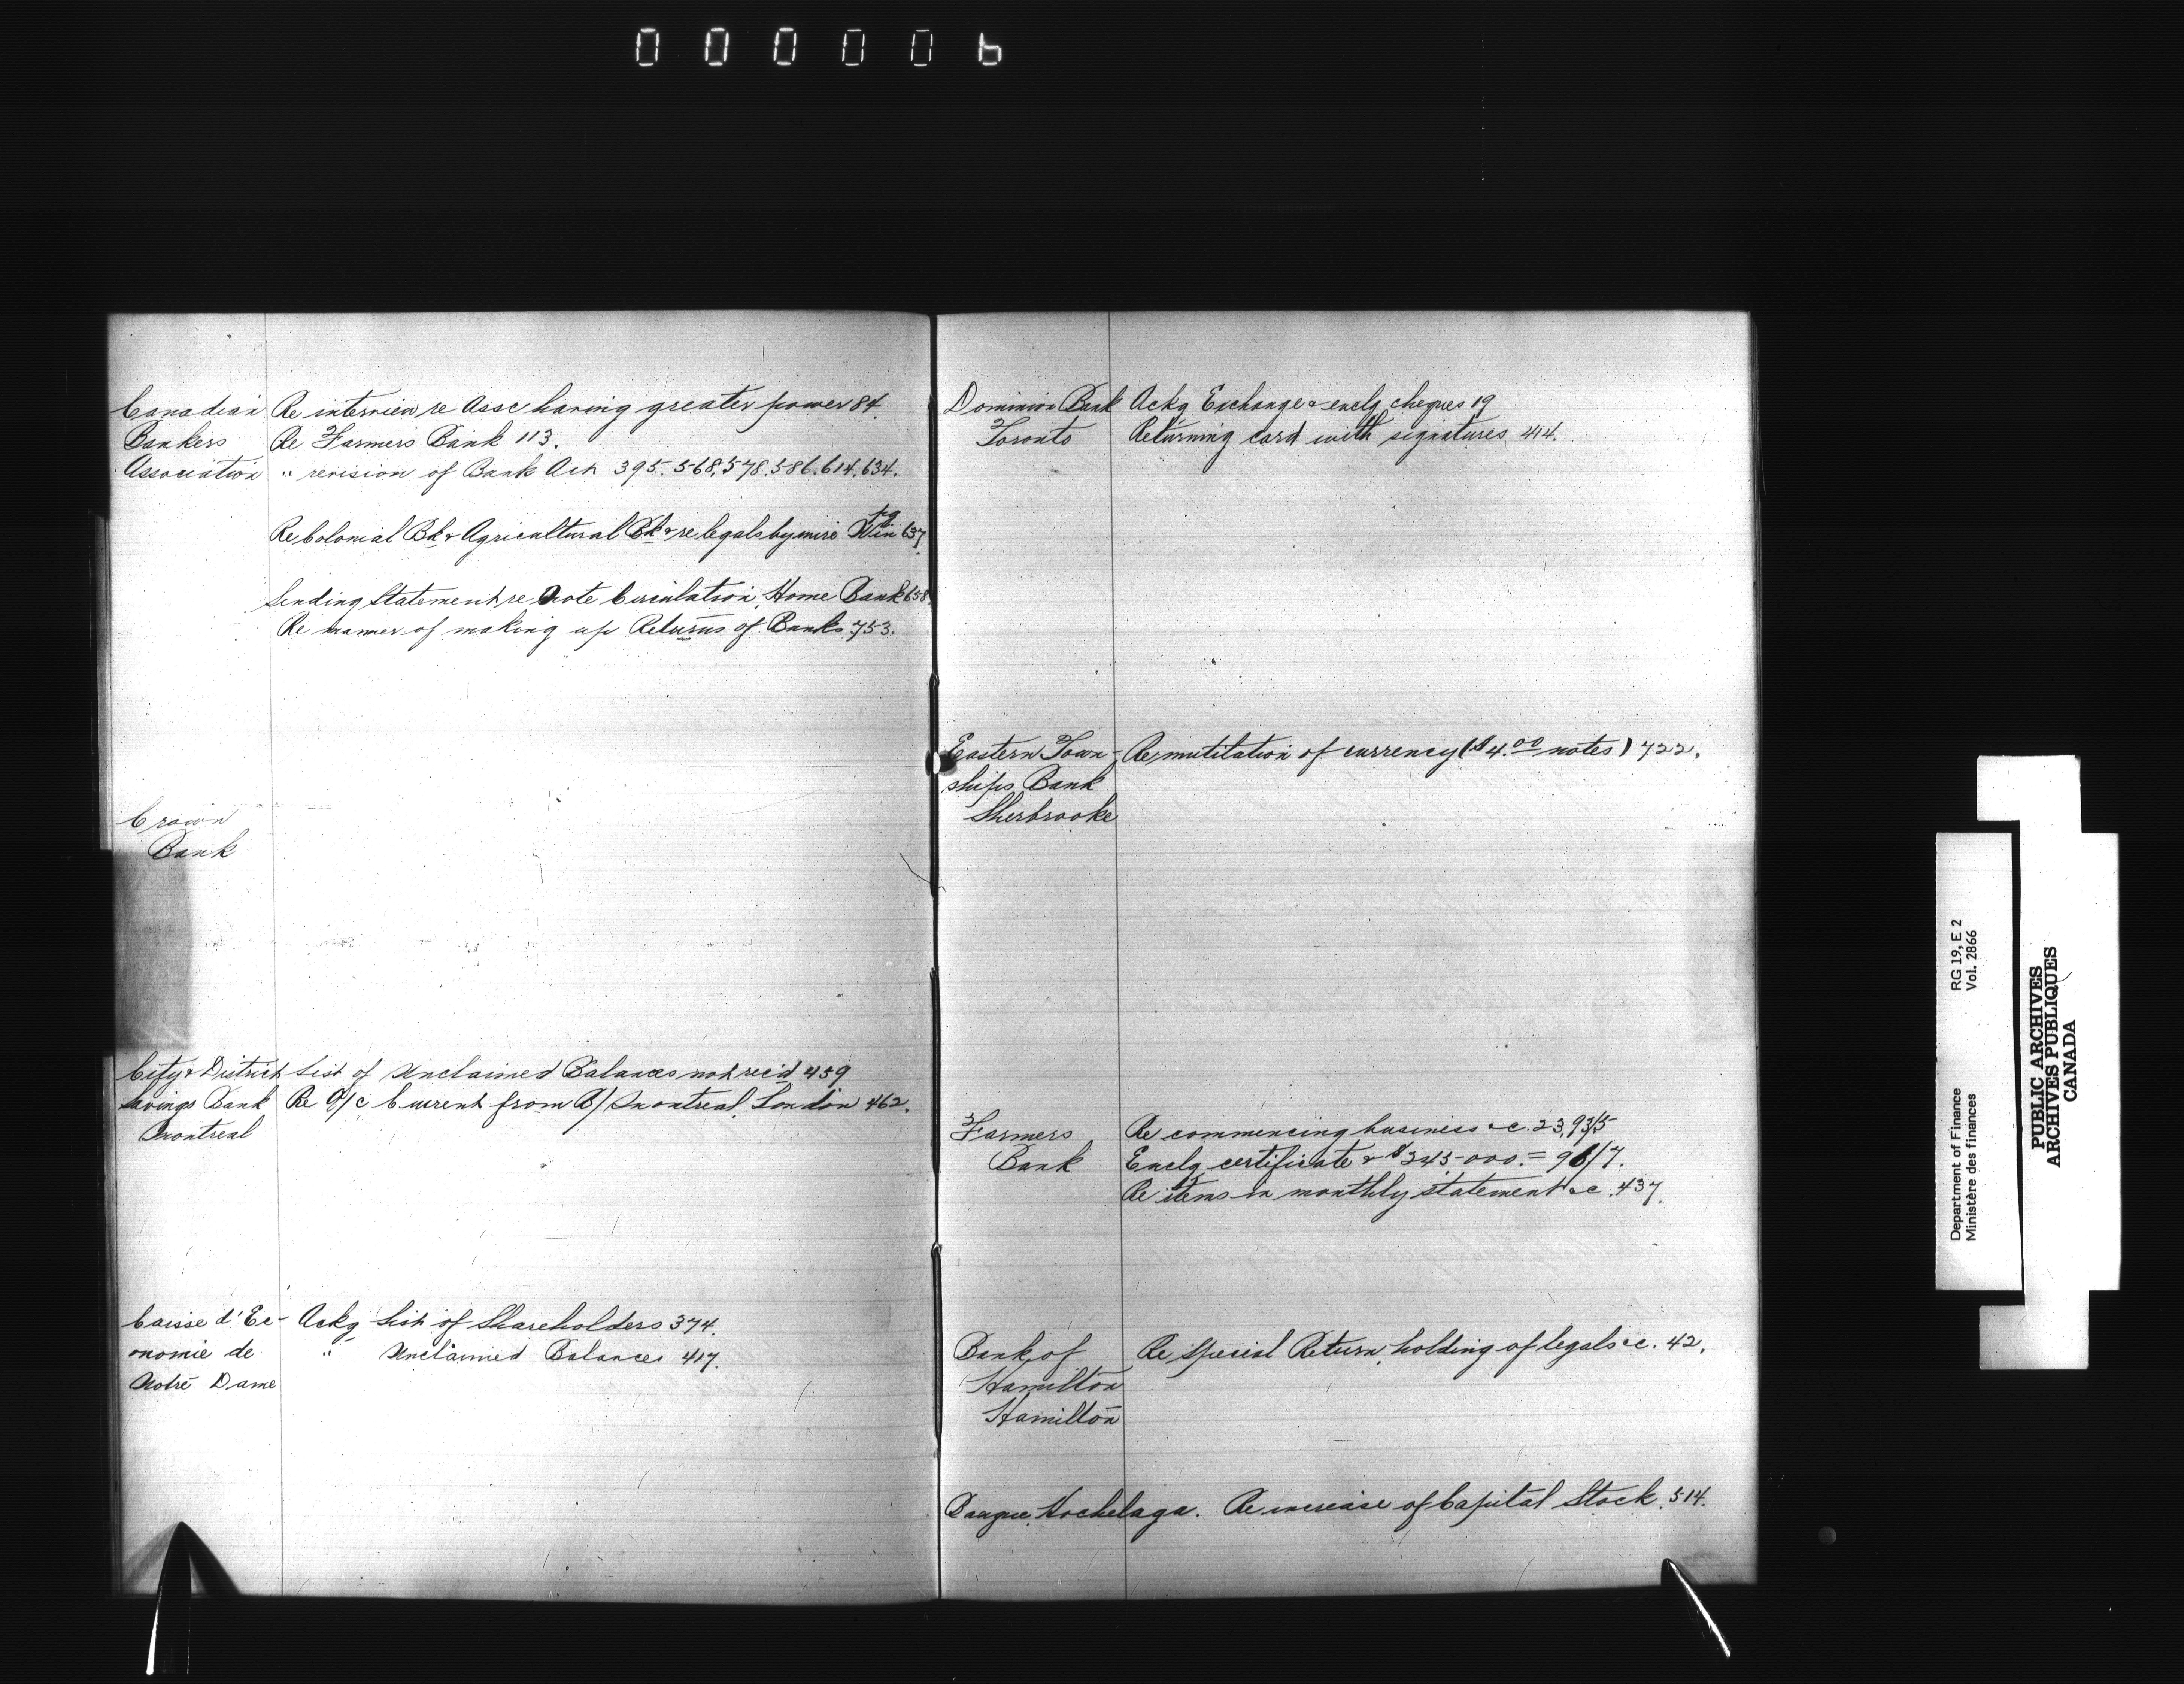 000006
Canadian Re interview re Assc having greater power 84.
Bankers Re Farmers Bank 113.
Association " revision of Bank Act 395. 568. 578. 586. 614. 634.
Re Colonial Bk & Agricultural Bk & re legals by wire Winpg 637
Sending Statement re Note Circulation, Home Bank 658.
Re manner of making up Returns of Banks 753.
Crown
Bank
City & District List of Unclaimed Balances not rec'd 459
Savings Bank Re A/c Current from B/ Montreal, London 462.
Montreal
Caisse d'Ec- Ackg List of Shareholders 374.
onomie de " Unclaimed Balances 417.
Notre Dame
Dominion Bank Ackg Exchange & enclg cheques 19
Toronto Returning card with signatures 414.
Eastern Town- Re mutilation of currency ($4.00 notes) 722.
ships Bank
Sherbrooke
Farmers Re commencing business &c. 23, 93/5
Bank Enclg certificate & $245 000.= 96/7.
Re items in monthly statement &c. 437.
Bank of Re Special Return, holding of legals &c. 42.
Hamilton
Hamilton
Banque Hochelaga. Re increase of Capital Stock. 514.
Department of Finance RG 19, E 2
Ministère des finances Vol. 2866
PUBLIC ARCHIVES
ARCHIVES PUBLIQUES
CANADA